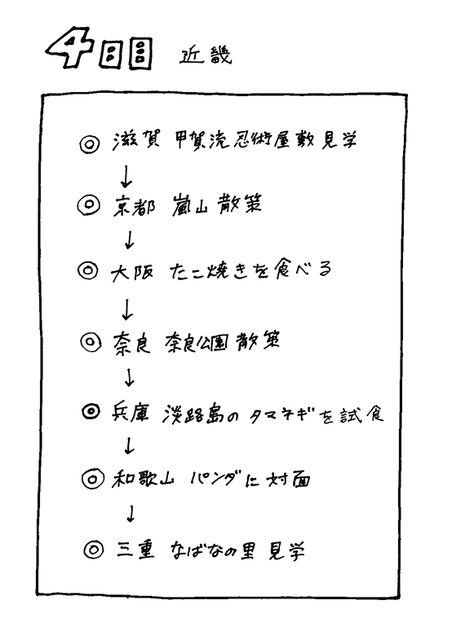 4日目 近畿
◎ 滋賀 甲賀流忍術屋敷見学
↓
◎ 京都 嵐山散策
↓
◎ 大阪 たこ焼きを食べる
↓
◎ 奈良 奈良公園散策
↓
◎ 兵庫 淡路島のタマネギを試食
↓
◎ 和歌山 パンダに対面
↓
◎ 三重 なばなの里見学